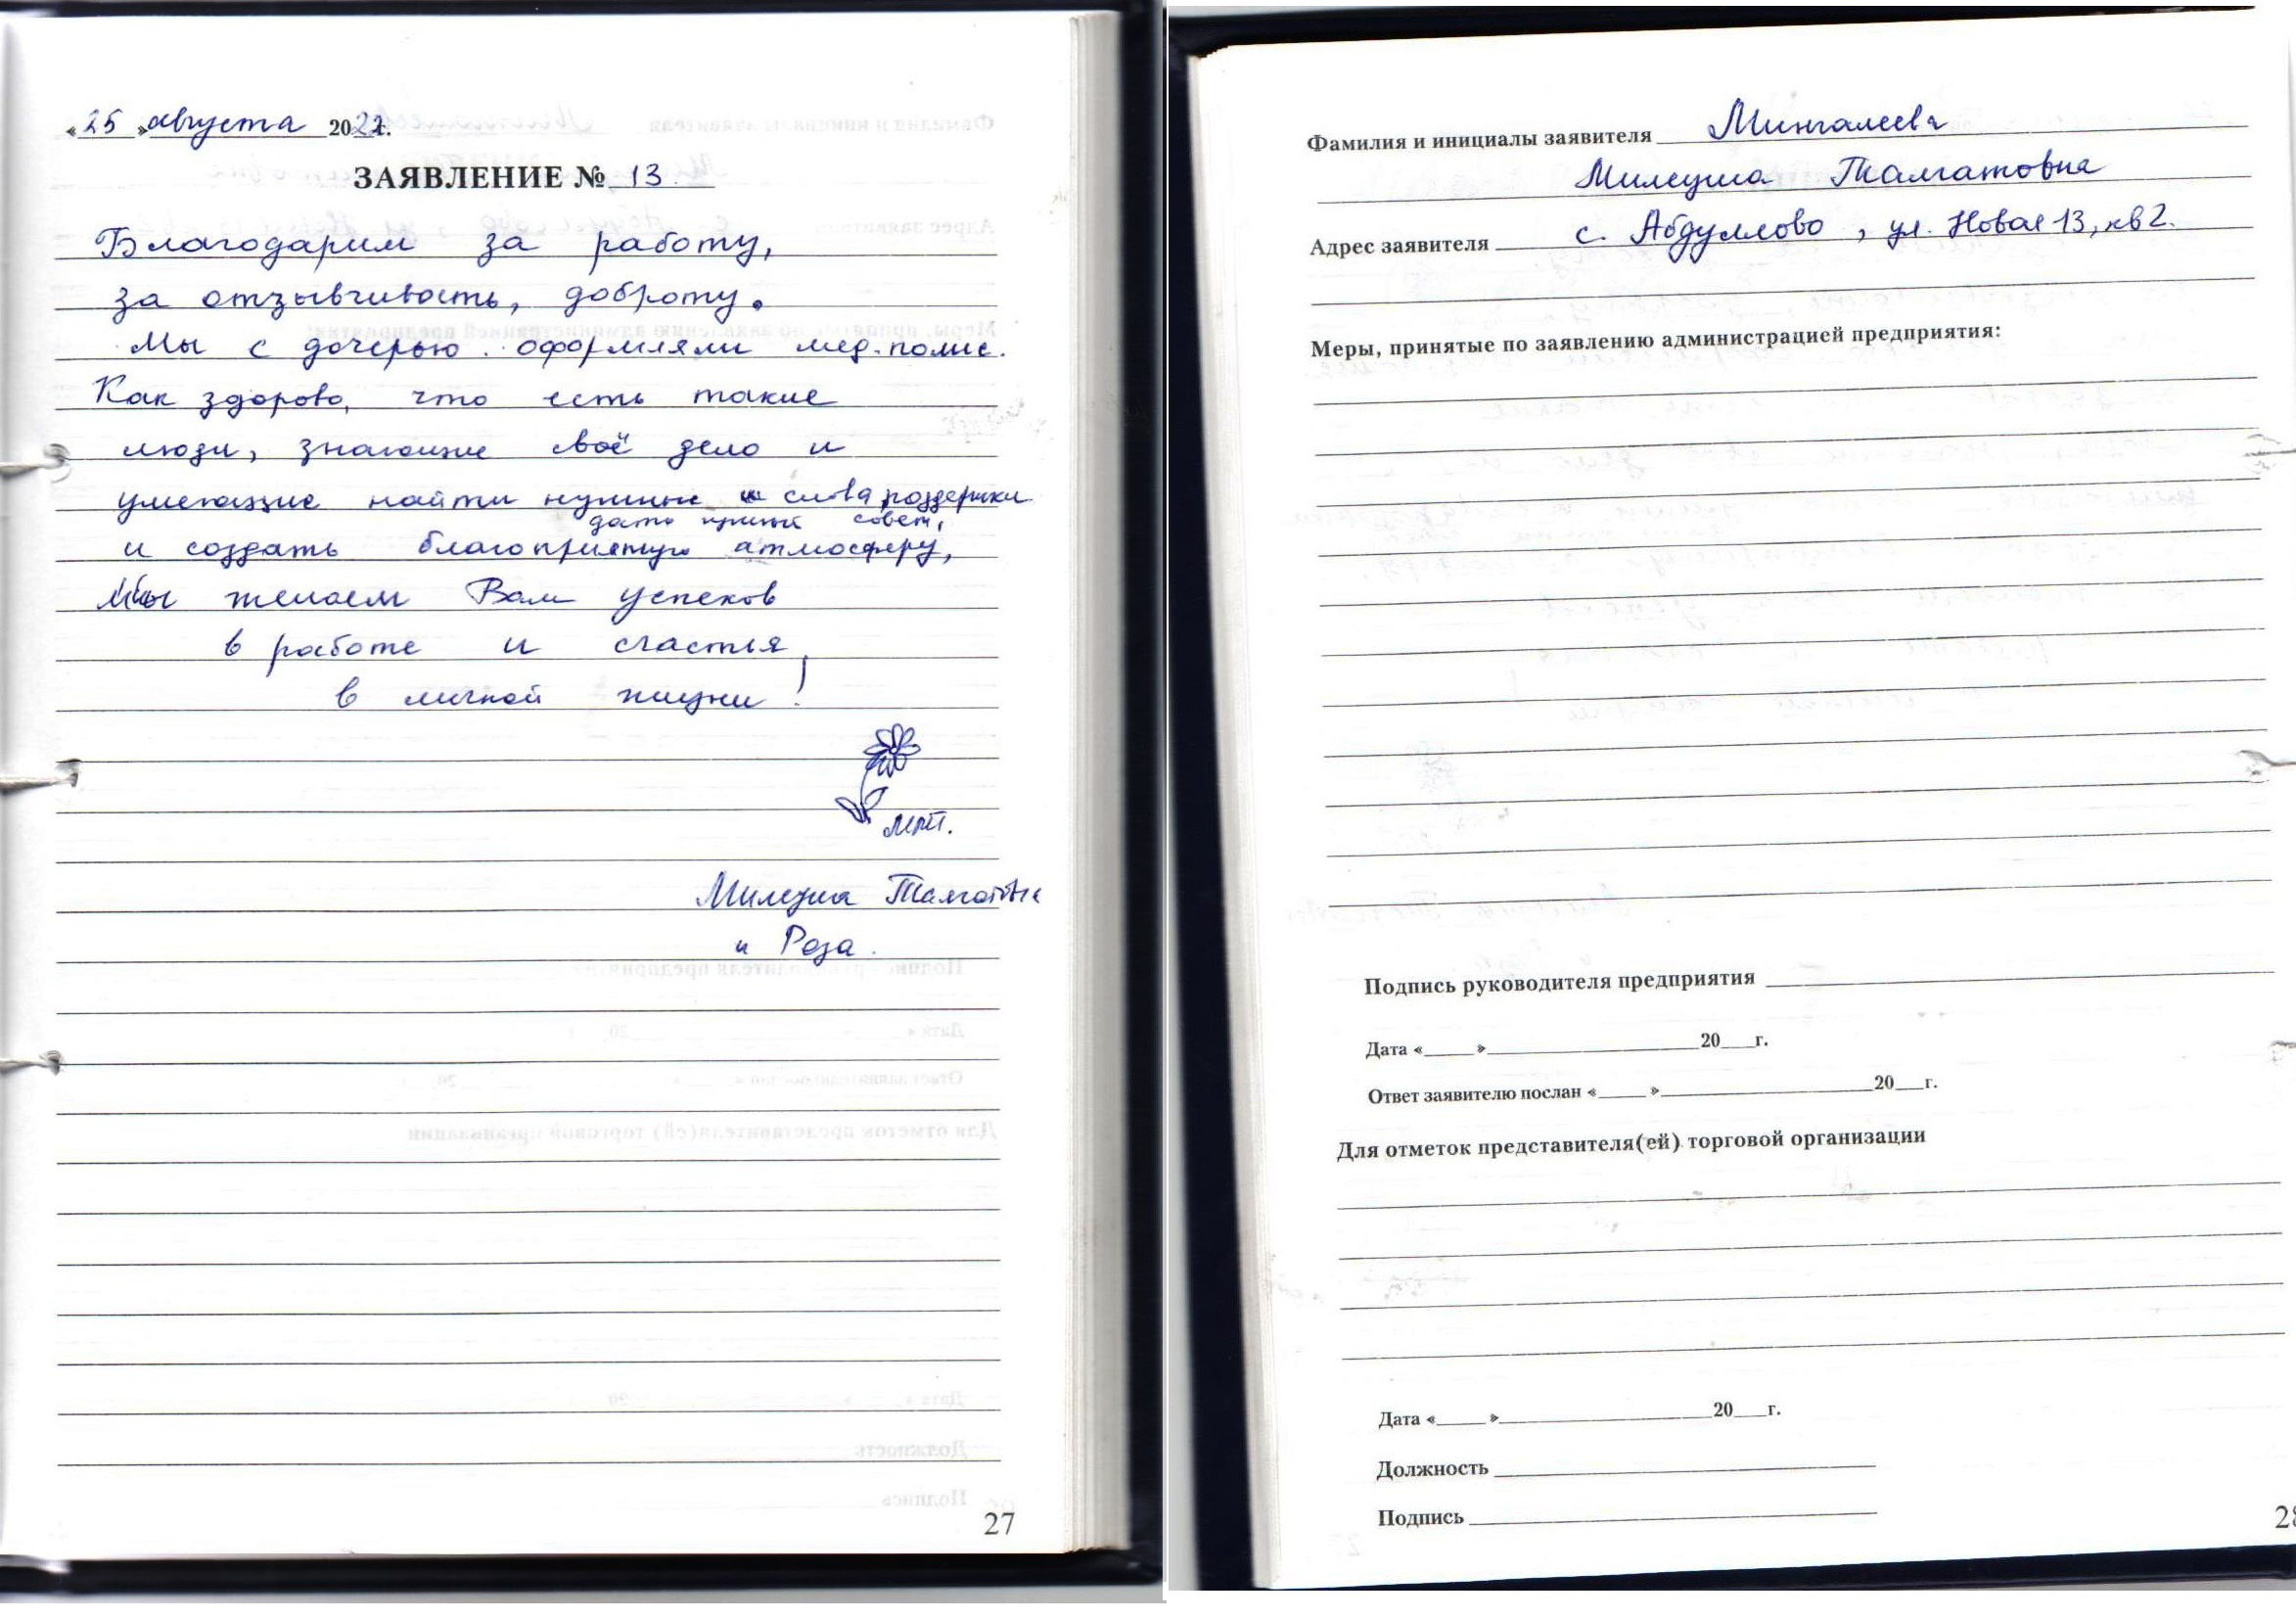 «25» августа 2022г.
ЗАЯВЛЕНИЕ № 13
Благодарим за работу,
за отзывчивость, доброту.
Мы с дочерью оформляли мед.полис.
Как здорово, что есть такие
люди, знающие своё дело и
умеющие найти нужные слова поддержки
дать нужный совет,
и создать благоприятную атмосферу,
Мы желаем Вам успехов
в работе и счастья
в личной жизни!
Милеуша Талгатовна
и Роза.
27
Фамилия и инициалы заявителя Мингалеева
Милеуша Талгатовна
Адрес заявителя с. Абдуллово, ул. Новая 13, кв 2.
Меры, принятые по заявлению администрацией предприятия:
Подпись руководителя предприятия
Дата « » 20 г.
Ответ заявителю послан « » 20 г.
Для отметок представителя(ей) торговой организации
Дата « » 20 г.
Должность
Подпись
28